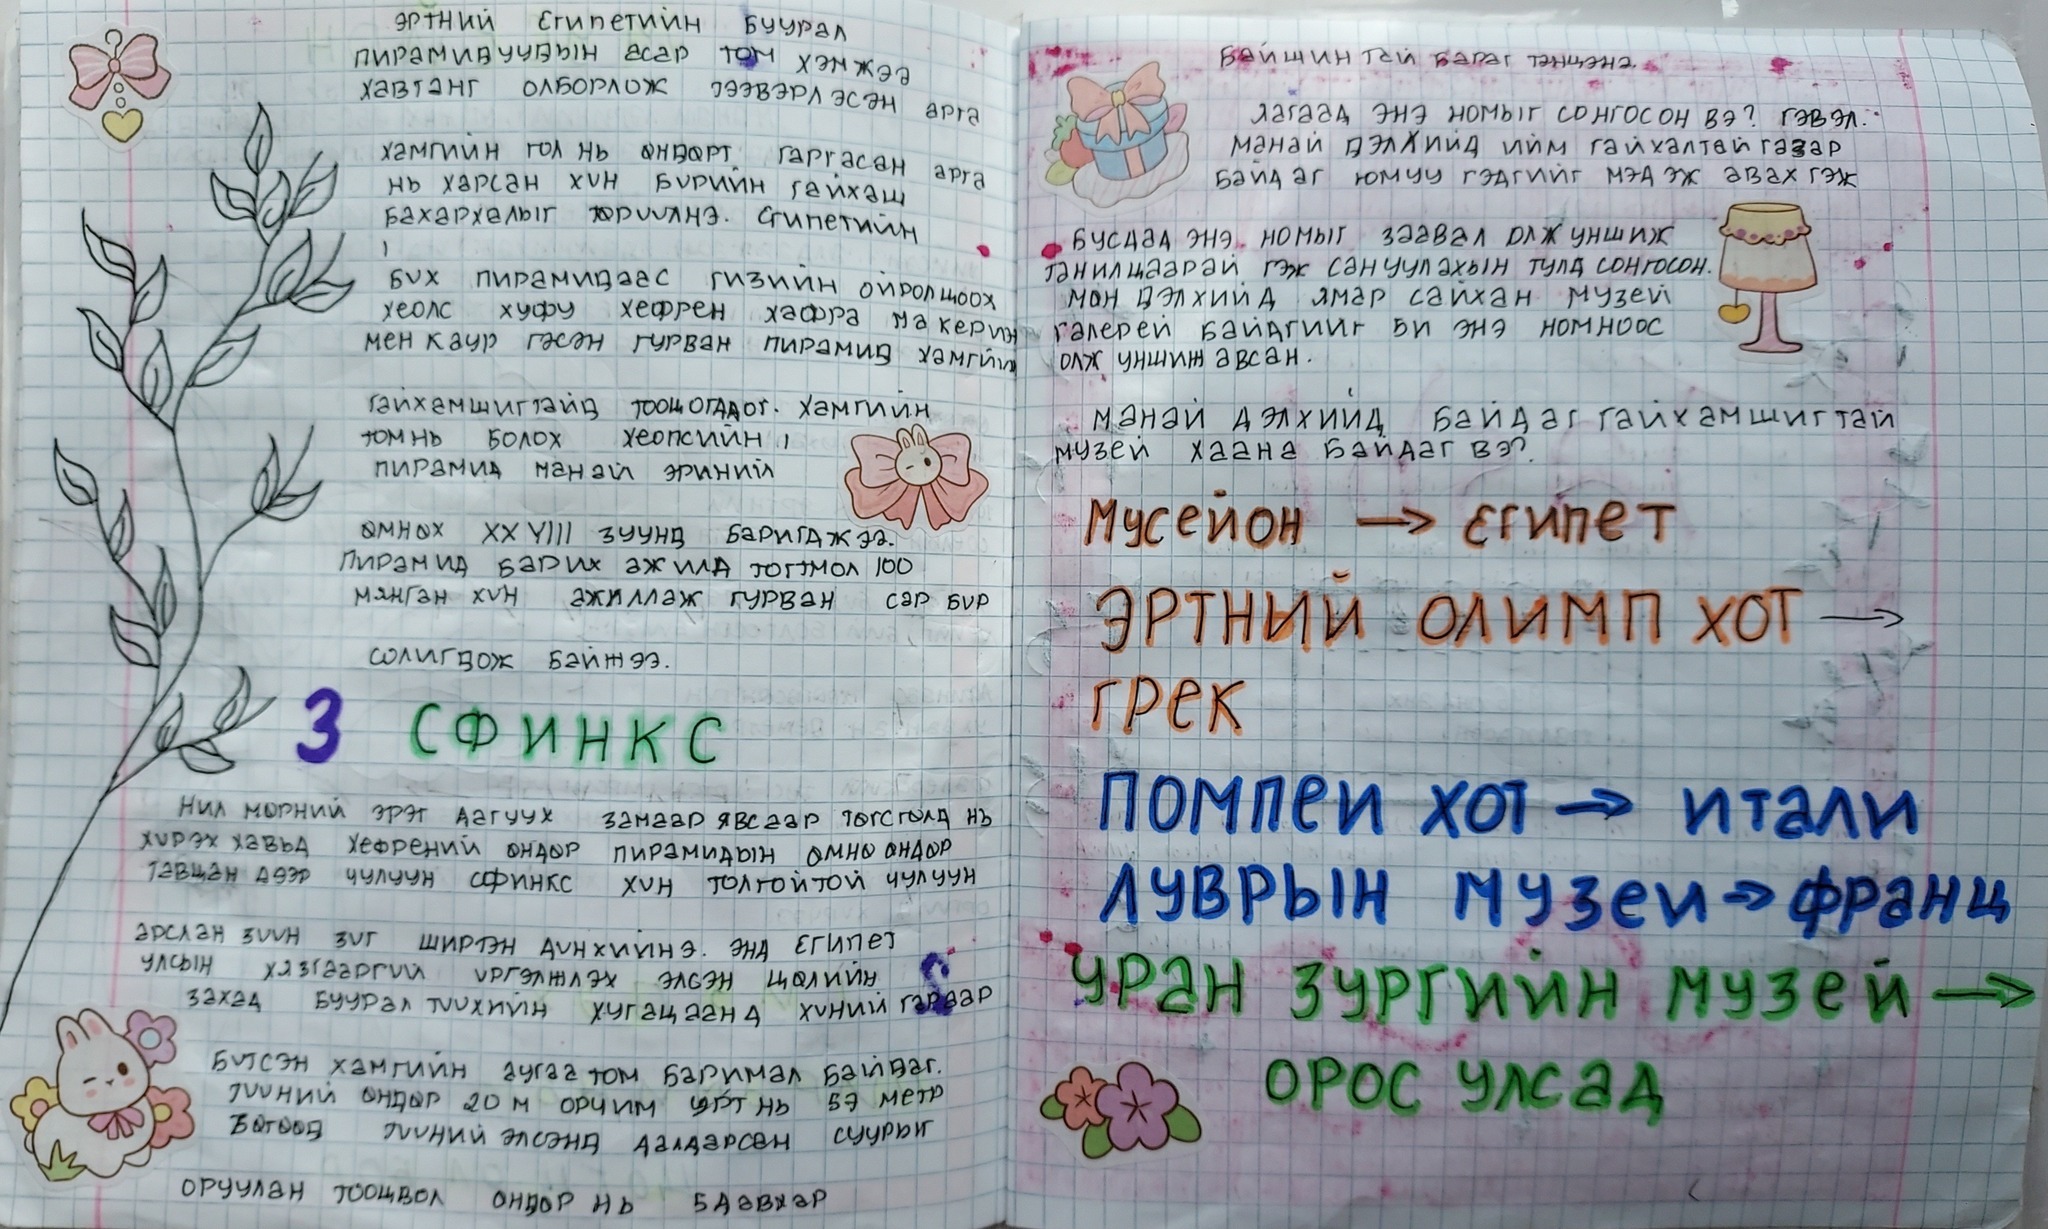 ЭРТНИЙ ЕГИПЕТИЙН БУУРАЛ
ПИРАМИДУУДЫН АСАР ТОМ ХЭМЖЭЭ
ХАВТАНГ ОЛБОРЛОЖ ТЭЭВЭРЛЭСЭН АРГА
ХАМГИЙН ГОЛ НЬ ӨНДӨРТ ГАРГАСАН АРГА
НЬ ХАРСАН ХҮН БҮРИЙН ГАЙХАШ
БАХАРХАЛЫГ ТӨРҮҮЛНЭ. ЕГИПЕТИЙН
БҮХ ПИРАМИДААС ГИЗИЙН ОЙРОЛЦООХ
ХЕОЛС ХУФУ ХЕФРЕН ХАФРА МАКЕРИН
МЕНКАУР ГЭСЭН ГУРВАН ПИРАМИД ХАМГИЙН
ГАЙХАМШИГТАЙД ТООЦОГДДОГ. ХАМГИЙН
ТОМ НЬ БОЛОХ ХЕОПСИЙН
ПИРАМИД МАНАЙ ЭРИНИЙ
ӨМНӨХ XXVIII ЗУУНД БАРИГДЖЭЭ.
ПИРАМИД БАРИХ АЖИЛД ТОГТМОЛ 100
МЯНГАН ХҮН АЖИЛЛАЖ ГУРВАН САР БҮР
СОЛИГДОЖ БАЙЖЭЭ.
3 СФИНКС
НИЛ МӨРНИЙ ЭРЭГ ДАГУУХ ЗАМААР ЯВСААР ТӨГСГӨЛД НЬ
ХҮРЭХ ХАВЬД ХЕФРЕНИЙ ӨНДӨР ПИРАМИДЫН ӨМНӨ ӨНДӨР
ТАВЦАН ДЭЭР ЧУЛУУН СФИНКС ХҮН ТОЛГОЙТОЙ ЧУЛУУН
АРСЛАН ЗҮҮН ЗҮГ ШИРТЭН ДҮНХИЙНЭ. ЭНД ЕГИПЕТ
УЛСЫН ХЯЗГААРГҮЙ ҮРГЭЛЖЛЭХ ЭЛСЭН ЦӨЛИЙН
ЗАХАД БУУРАЛ ТҮҮХИЙН ХУГАЦААНД ХҮНИЙ ГАРААР
БҮТСЭН ХАМГИЙН АУГАА ТОМ БАРИМАЛ БАЙДАГ.
ТҮҮНИЙ ӨНДӨР 20 М ОРЧИМ УРТ НЬ 57 МЕТР
БӨГӨӨД ТҮҮНИЙ ЭЛСЭНД ДАЛДАРСАН СУУРЫГ
ОРУУЛАН ТООЦВОЛ ӨНДӨР НЬ 5 ДАВХАР
БАЙШИНТАЙ БАРАГ ТЭНЦЭНЭ.
ЯАГААД ЭНЭ НОМЫГ СОНГОСОН ВЭ? ГЭВЭЛ:
МАНАЙ ДЭЛХИЙД ИЙМ ГАЙХАЛТАЙ ГАЗАР
БАЙДАГ ЮМУУ ГЭДГИЙГ МЭДЭЖ АВАХ ГЭЖ
БУСДАД ЭНЭ НОМЫГ ЗААВАЛ ОЛЖ УНШИЖ
ТАНИЛЦААРАЙ ГЭЖ САНУУЛАХЫН ТУЛД СОНГОСОН.
МӨН ДЭЛХИЙД ЯМАР САЙХАН МУЗЕЙ
ГАЛЕРЕЙ БАЙДГИЙГ БИ ЭНЭ НОМНООС
ОЛЖ УНШИЖ АВСАН.
МАНАЙ ДЭЛХИЙД БАЙДАГ ГАЙХАМШИГТАЙ
МУЗЕЙ ХААНА БАЙДАГ ВЭ?
МУСЕЙОН → ЕГИПЕТ
ЭРТНИЙ ОЛИМП ХОТ →
ГРЕК
ПОМПЕИ ХОТ → ИТАЛИ
ЛУВРЫН МУЗЕИ → ФРАНЦ
УРАН ЗУРГИЙН МУЗЕЙ →
ОРОС УЛСАД